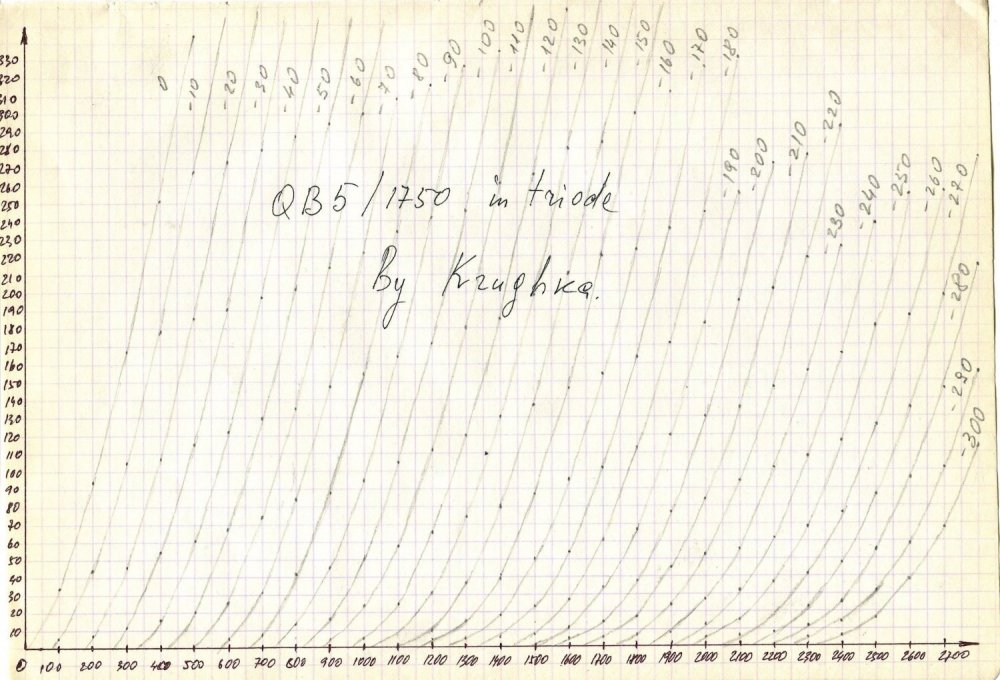 0
-10
-20
-30
-40
-50
-60
-70
-80
-90
-100
-110
-120
-130
-140
-150
-160
-170
-180
-190
-200
-210
-220
-230
-240
-250
-260
-270
-280
-290
-300
QB5/1750 in triode
By Krughka.
330
320
310
300
290
280
270
260
250
240
230
220
210
200
190
180
170
160
150
140
130
120
110
100
90
80
70
60
50
40
30
20
10
0 100 200 300 400 500 600 700 800 900 1000 1100 1200 1300 1400 1500 1600 1700 1800 1900 2000 2100 2200 2300 2400 2500 2600 2700